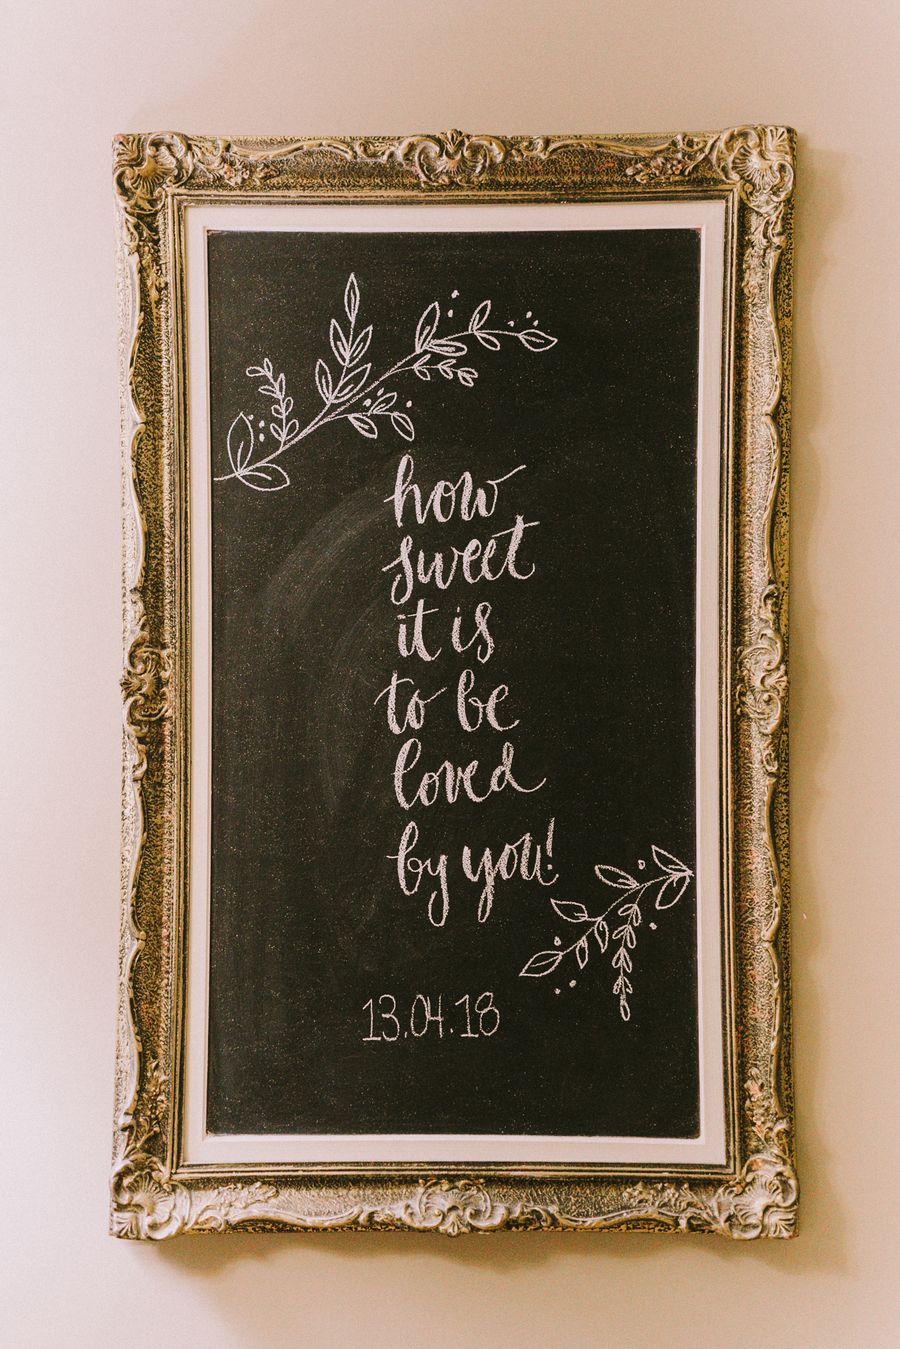 how
sweet
it is
to be
loved
by you!
13.04.18